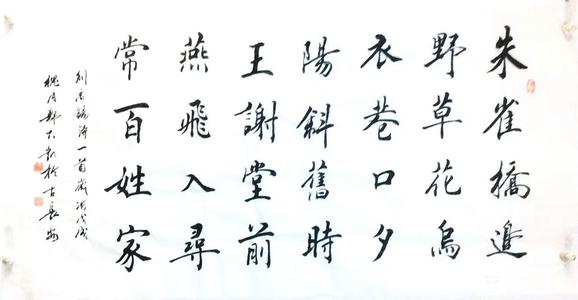 朱雀橋邊
野草花烏
衣巷口夕
陽斜舊時
王謝堂前
燕飛入尋
常百姓家
劉禹錫詩一首歲次戊戌
月於古長安